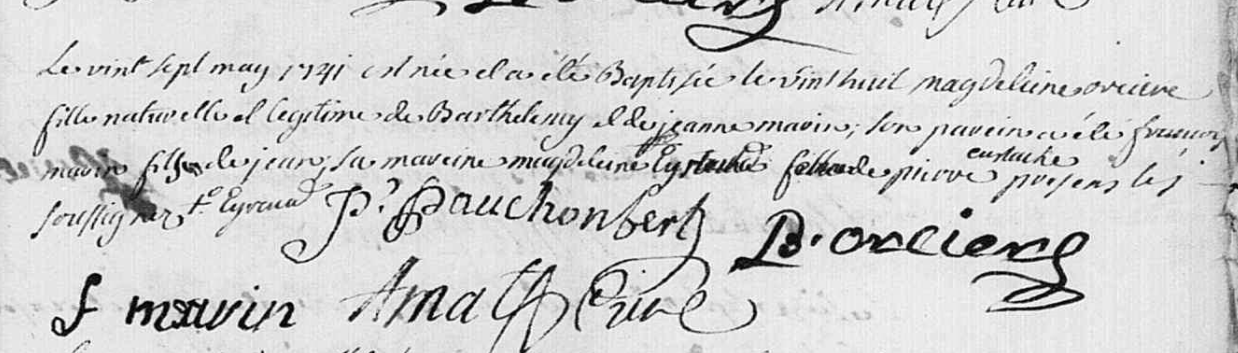 Le vint sept may 1741 est née et a été Baptisée le vint huit magdeleine orciere
fille naturelle et legitime de Barthelemy et de jeanne marin; son parein a été françois
marin fils de jean; sa mareine magdeleine Eystache fille de pierre eustache presens les
soussignez f. Eyraud P. Pauchonbert B. orciere
f marin Amat Curé